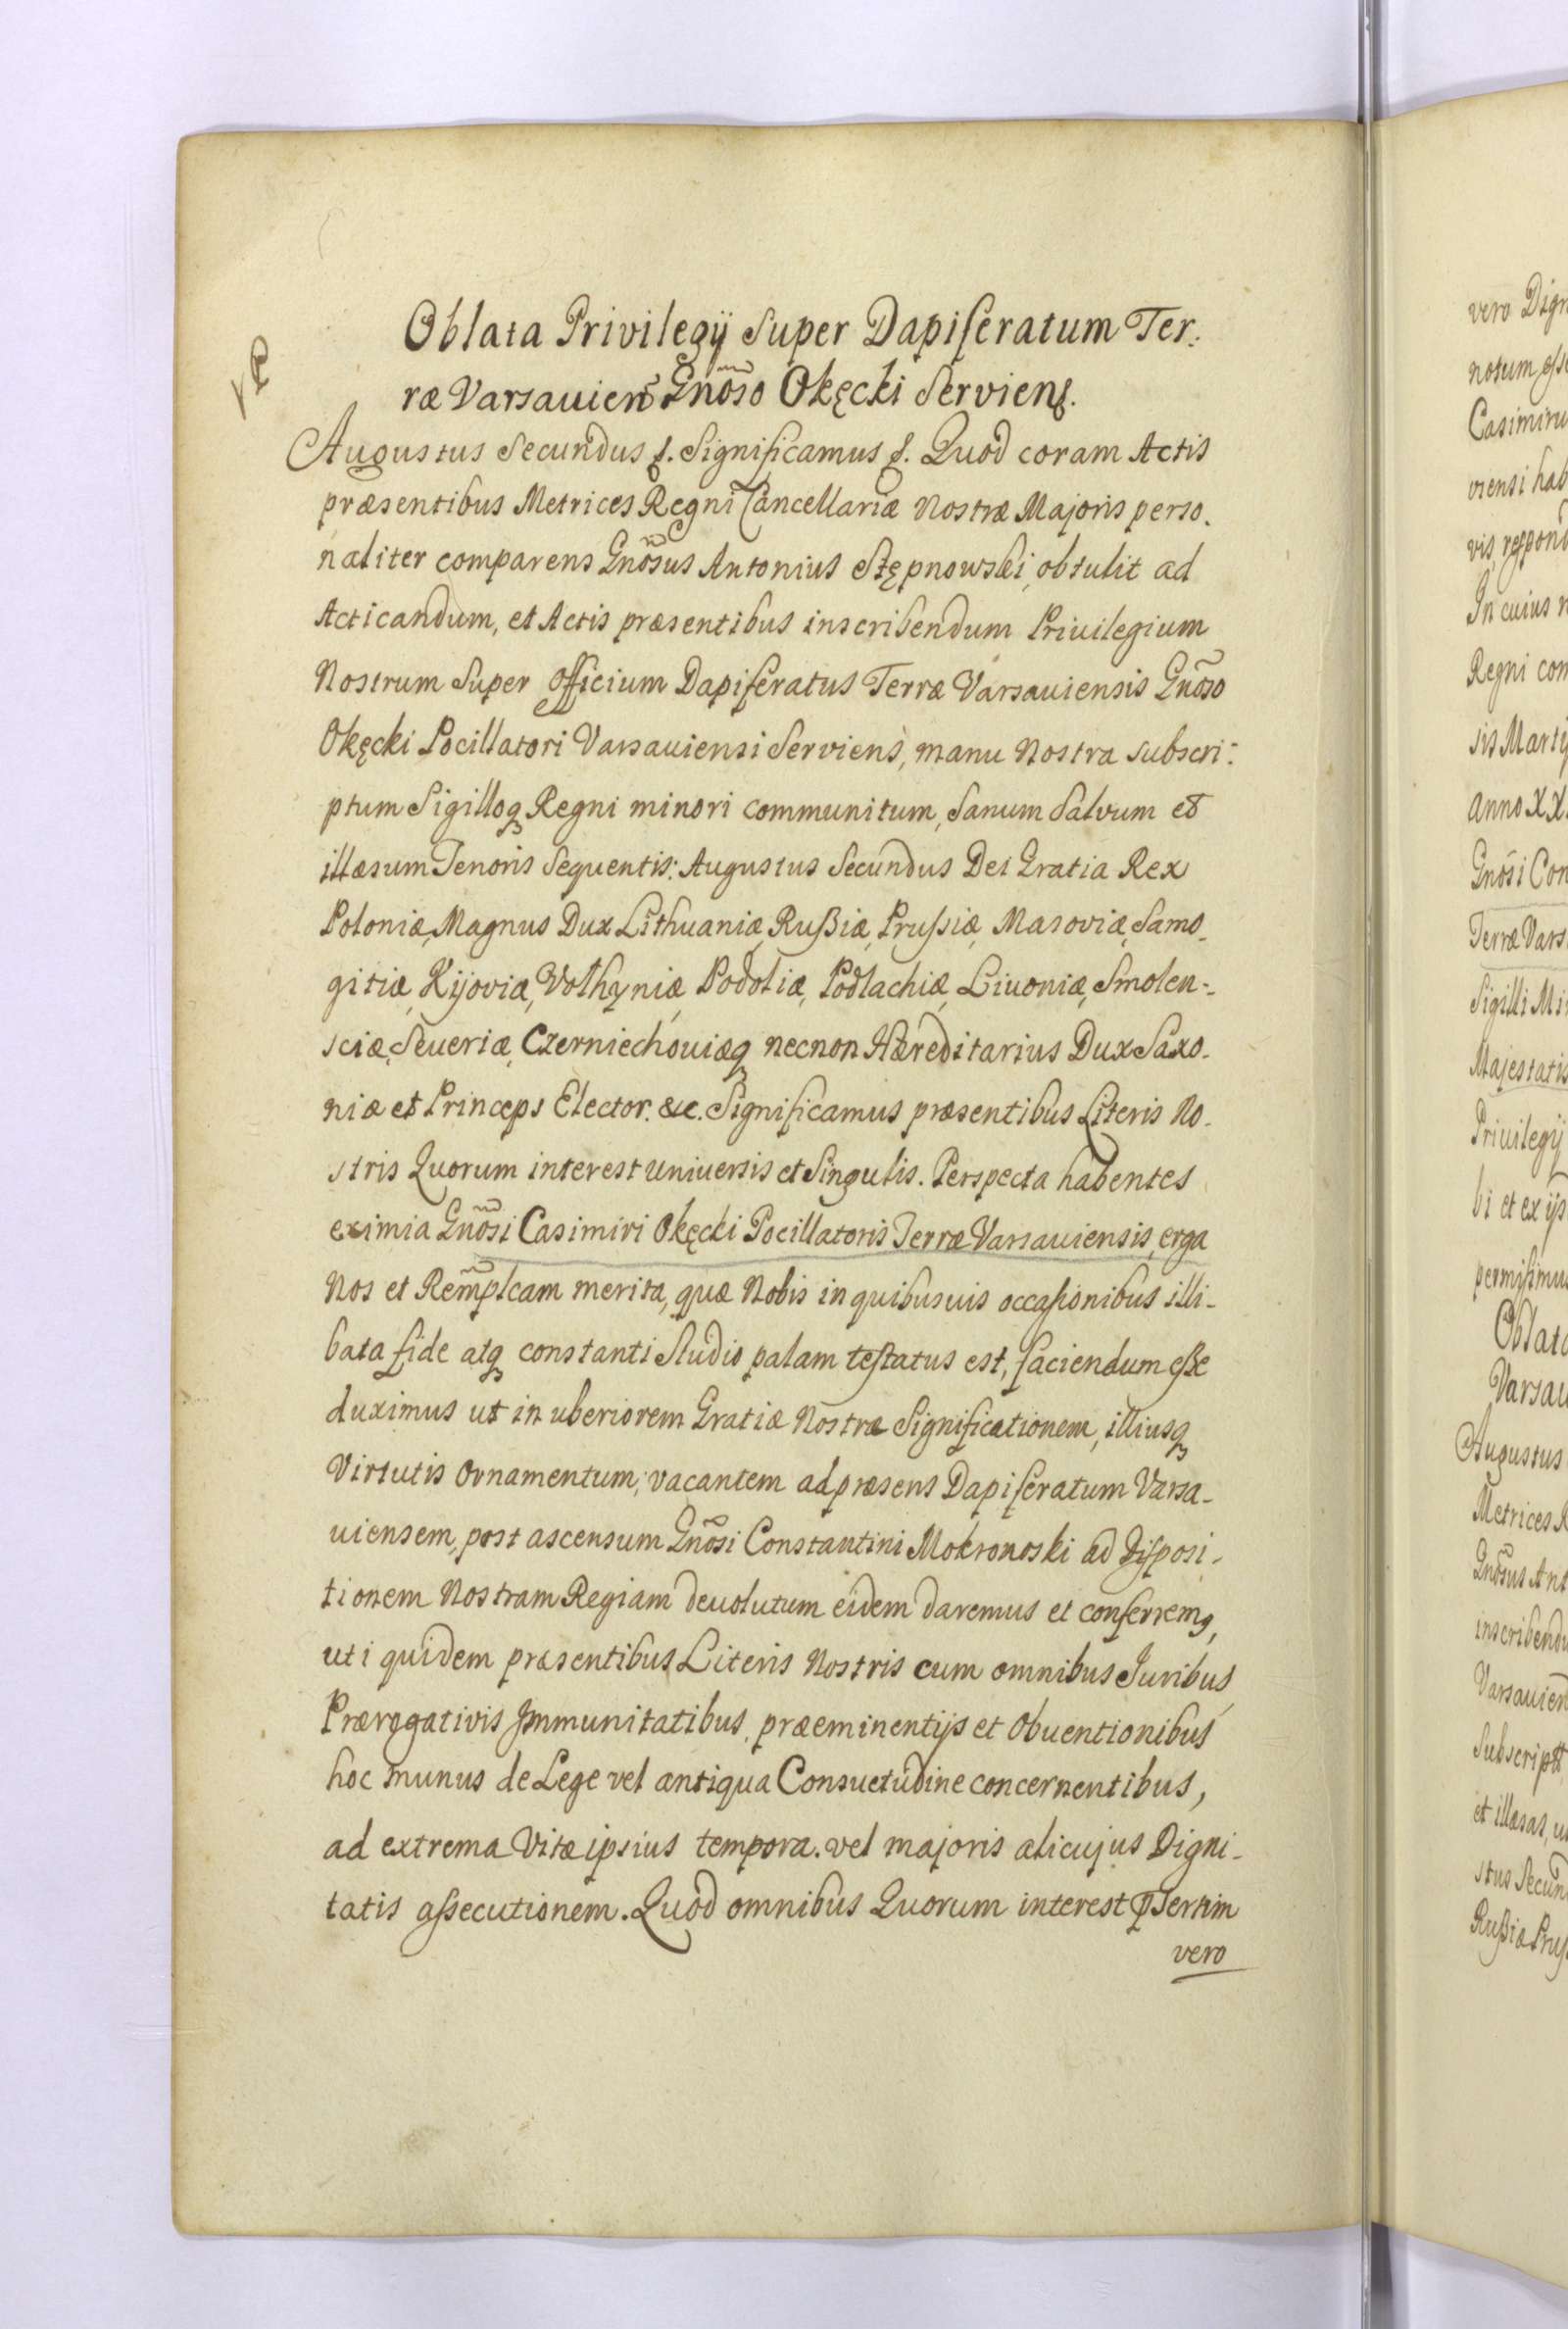 Oblata Privilegij Super Dapiferatum Ter:
ræ Varsauien̄ Gnōso Okęcki Serviens.
Augustus Secundus &. Significamus &. Quod coram Actis
præsentibus Metrices Regni Cancellariæ Nostræ Majoris perso-
naliter comparens Gnōsus Antonius Stępnowski obtulit ad
Acticandum, et Actis præsentibus inscribendum Privilegium
Nostrum Super officium Dapiferatus Terræ Varsauiensis Gnōso
Okęcki Pocillatori Varsauiensi Serviens, manu Nostra subscri:
ptum Sigilloq Regni minori communitum, Sanum Salvum et
illæsum Tenoris Sequentis: Augustus Secundus Dei Gratia Rex
Poloniæ, Magnus Dux Lithuaniæ, Rußiæ, Prussiæ, Masoviæ, Samo-
gitiæ, Kijoviæ, Volhyniæ, Podoliæ, Podlachiæ, Livoniæ, Smolen-
sciæ, Seueriæ, Czerniechouiæq necnon Hæreditarius Dux Saxo-
niæ et Princeps Elector. &c. Significamus præsentibus Literis No-
stris Quorum interest universis et Singulis. Perspecta habentes
eximia Gnōsi Casimiri Okęcki Pocillatoris Terræ Varsauiensis, erga
Nos et Rem̄plcam merita, quæ Nobis in quibusuis occasionibus illi-
bata fide atq constanti Studio palam testatus est, faciendum esse
duximus ut in uberiorem Gratiæ Nostræ Significationem, illiusq
Virtutis Ornamentum, vacantem ad præsens Dapiferatum Varsa-
uiensem, post ascensum Gnōsi Constantini Mokronoski ad Disposi-
tionem Nostram Regiam devolutum eidem daremus et conferremq,
uti quidem præsentibus Literis Nostris cum omnibus Juribus,
Prærogativis Immunitatibus, præeminentijs et Obuentionibus
hoc munus de Lege vel antiqua Consuetudine concernentibus,
ad extrema Vitæ ipsius tempora. vel majoris alicujus Digni-
tatis assecutionem. Quod omnibus Quorum interest pSertim
vero
vero Dign
notum esse
Casimiru
viensi hab
vis, respond
In cuius
Regni con
sis Martij
anno XX
Gnōsi Con
Terræ Vars
Sigilli Mi
Majestatis
Privilegij
bi et ex ijs
permisimus
Oblata
Varsau
Augustus
Metrices R
Gnōsus Ant
inscribendu
Varsauien
Subscript
et illæsas, u
stus Secun
Rußiæ Prus